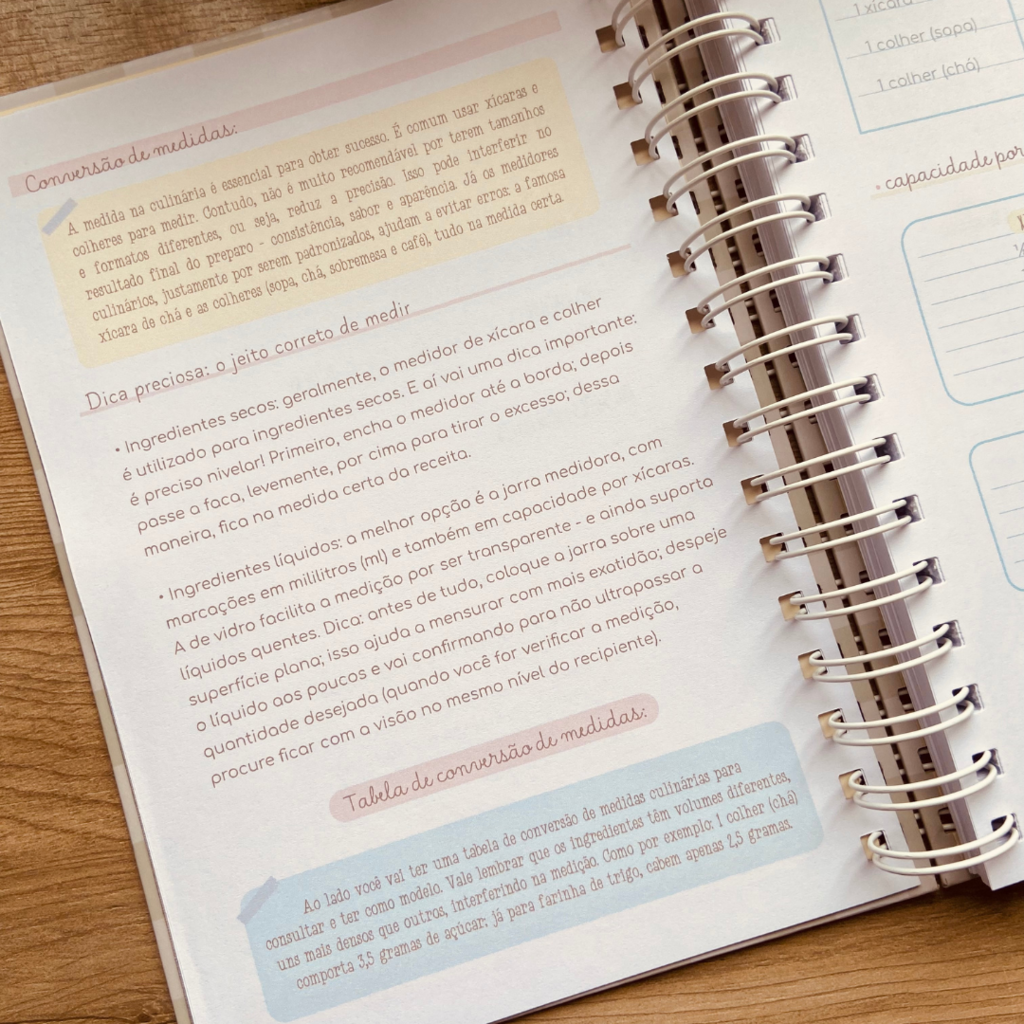 Conversão de medidas:
A medida na culinária é essencial para obter sucesso. É comum usar xícaras e
colheres para medir. Contudo, não é muito recomendável por terem tamanhos
e formatos diferentes, ou seja, reduz a precisão. Isso pode interferir no
resultado final do preparo - consistência, sabor e aparência. Já os medidores
culinários, justamente por serem padronizados, ajudam a evitar erros: a famosa
xícara de chá e as colheres (sopa, chá, sobremesa e café), tudo na medida certa.
Dica preciosa: o jeito correto de medir
• Ingredientes secos: geralmente, o medidor de xícara e colher
é utilizado para ingredientes secos. E aí vai uma dica importante:
é preciso nivelar! Primeiro, encha o medidor até a borda; depois
passe a faca, levemente, por cima para tirar o excesso; dessa
maneira, fica na medida certa da receita.
• Ingredientes líquidos: a melhor opção é a jarra medidora, com
marcações em mililitros (ml) e também em capacidade por xícaras.
A de vidro facilita a medição por ser transparente - e ainda suporta
líquidos quentes. Dica: antes de tudo, coloque a jarra sobre uma
superfície plana; isso ajuda a mensurar com mais exatidão; despeje
o líquido aos poucos e vai confirmando para não ultrapassar a
quantidade desejada (quando você for verificar a medição,
procure ficar com a visão no mesmo nível do recipiente).
Tabela de conversão de medidas:
Ao lado você vai ter uma tabela de conversão de medidas culinárias para
consultar e ter como modelo. Vale lembrar que os ingredientes têm volumes diferentes,
uns mais densos que outros, interferindo na medição. Como por exemplo: 1 colher (chá)
comporta 3,5 gramas de açúcar; já para farinha de trigo, cabem apenas 2,5 gramas.
1 xícara
1 colher (sopa)
1 colher (chá)
• capacidade por